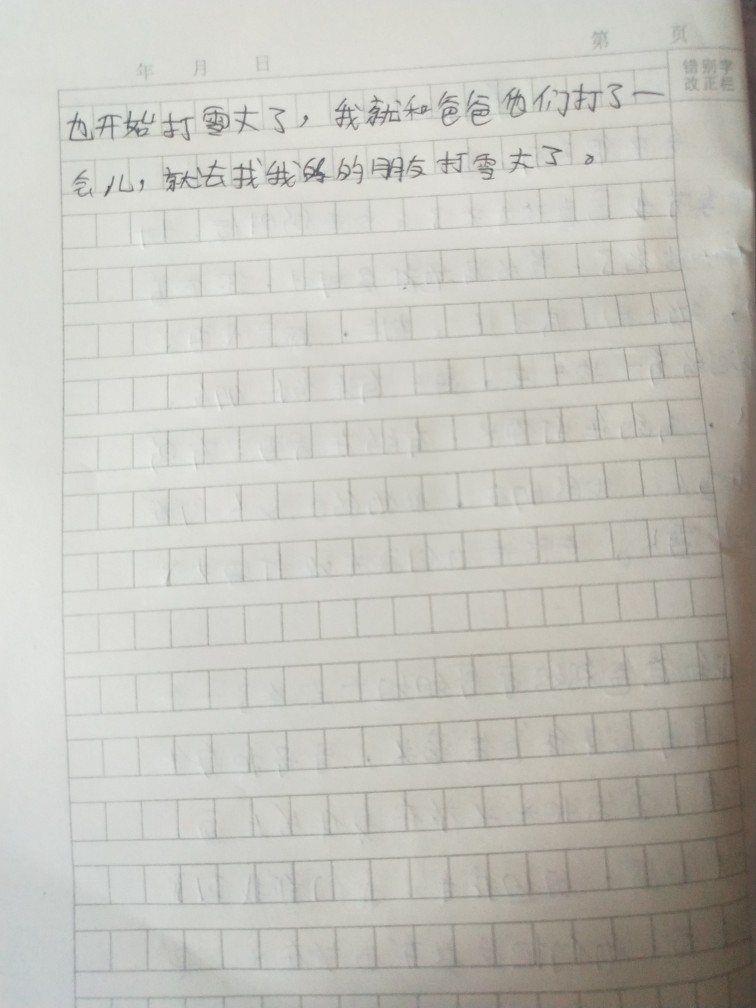 年 月 日
第 页
错别字
改正栏
也开始打雪丈了，我就和爸爸他们打了一
会儿，就去找我的的朋友打雪丈了。